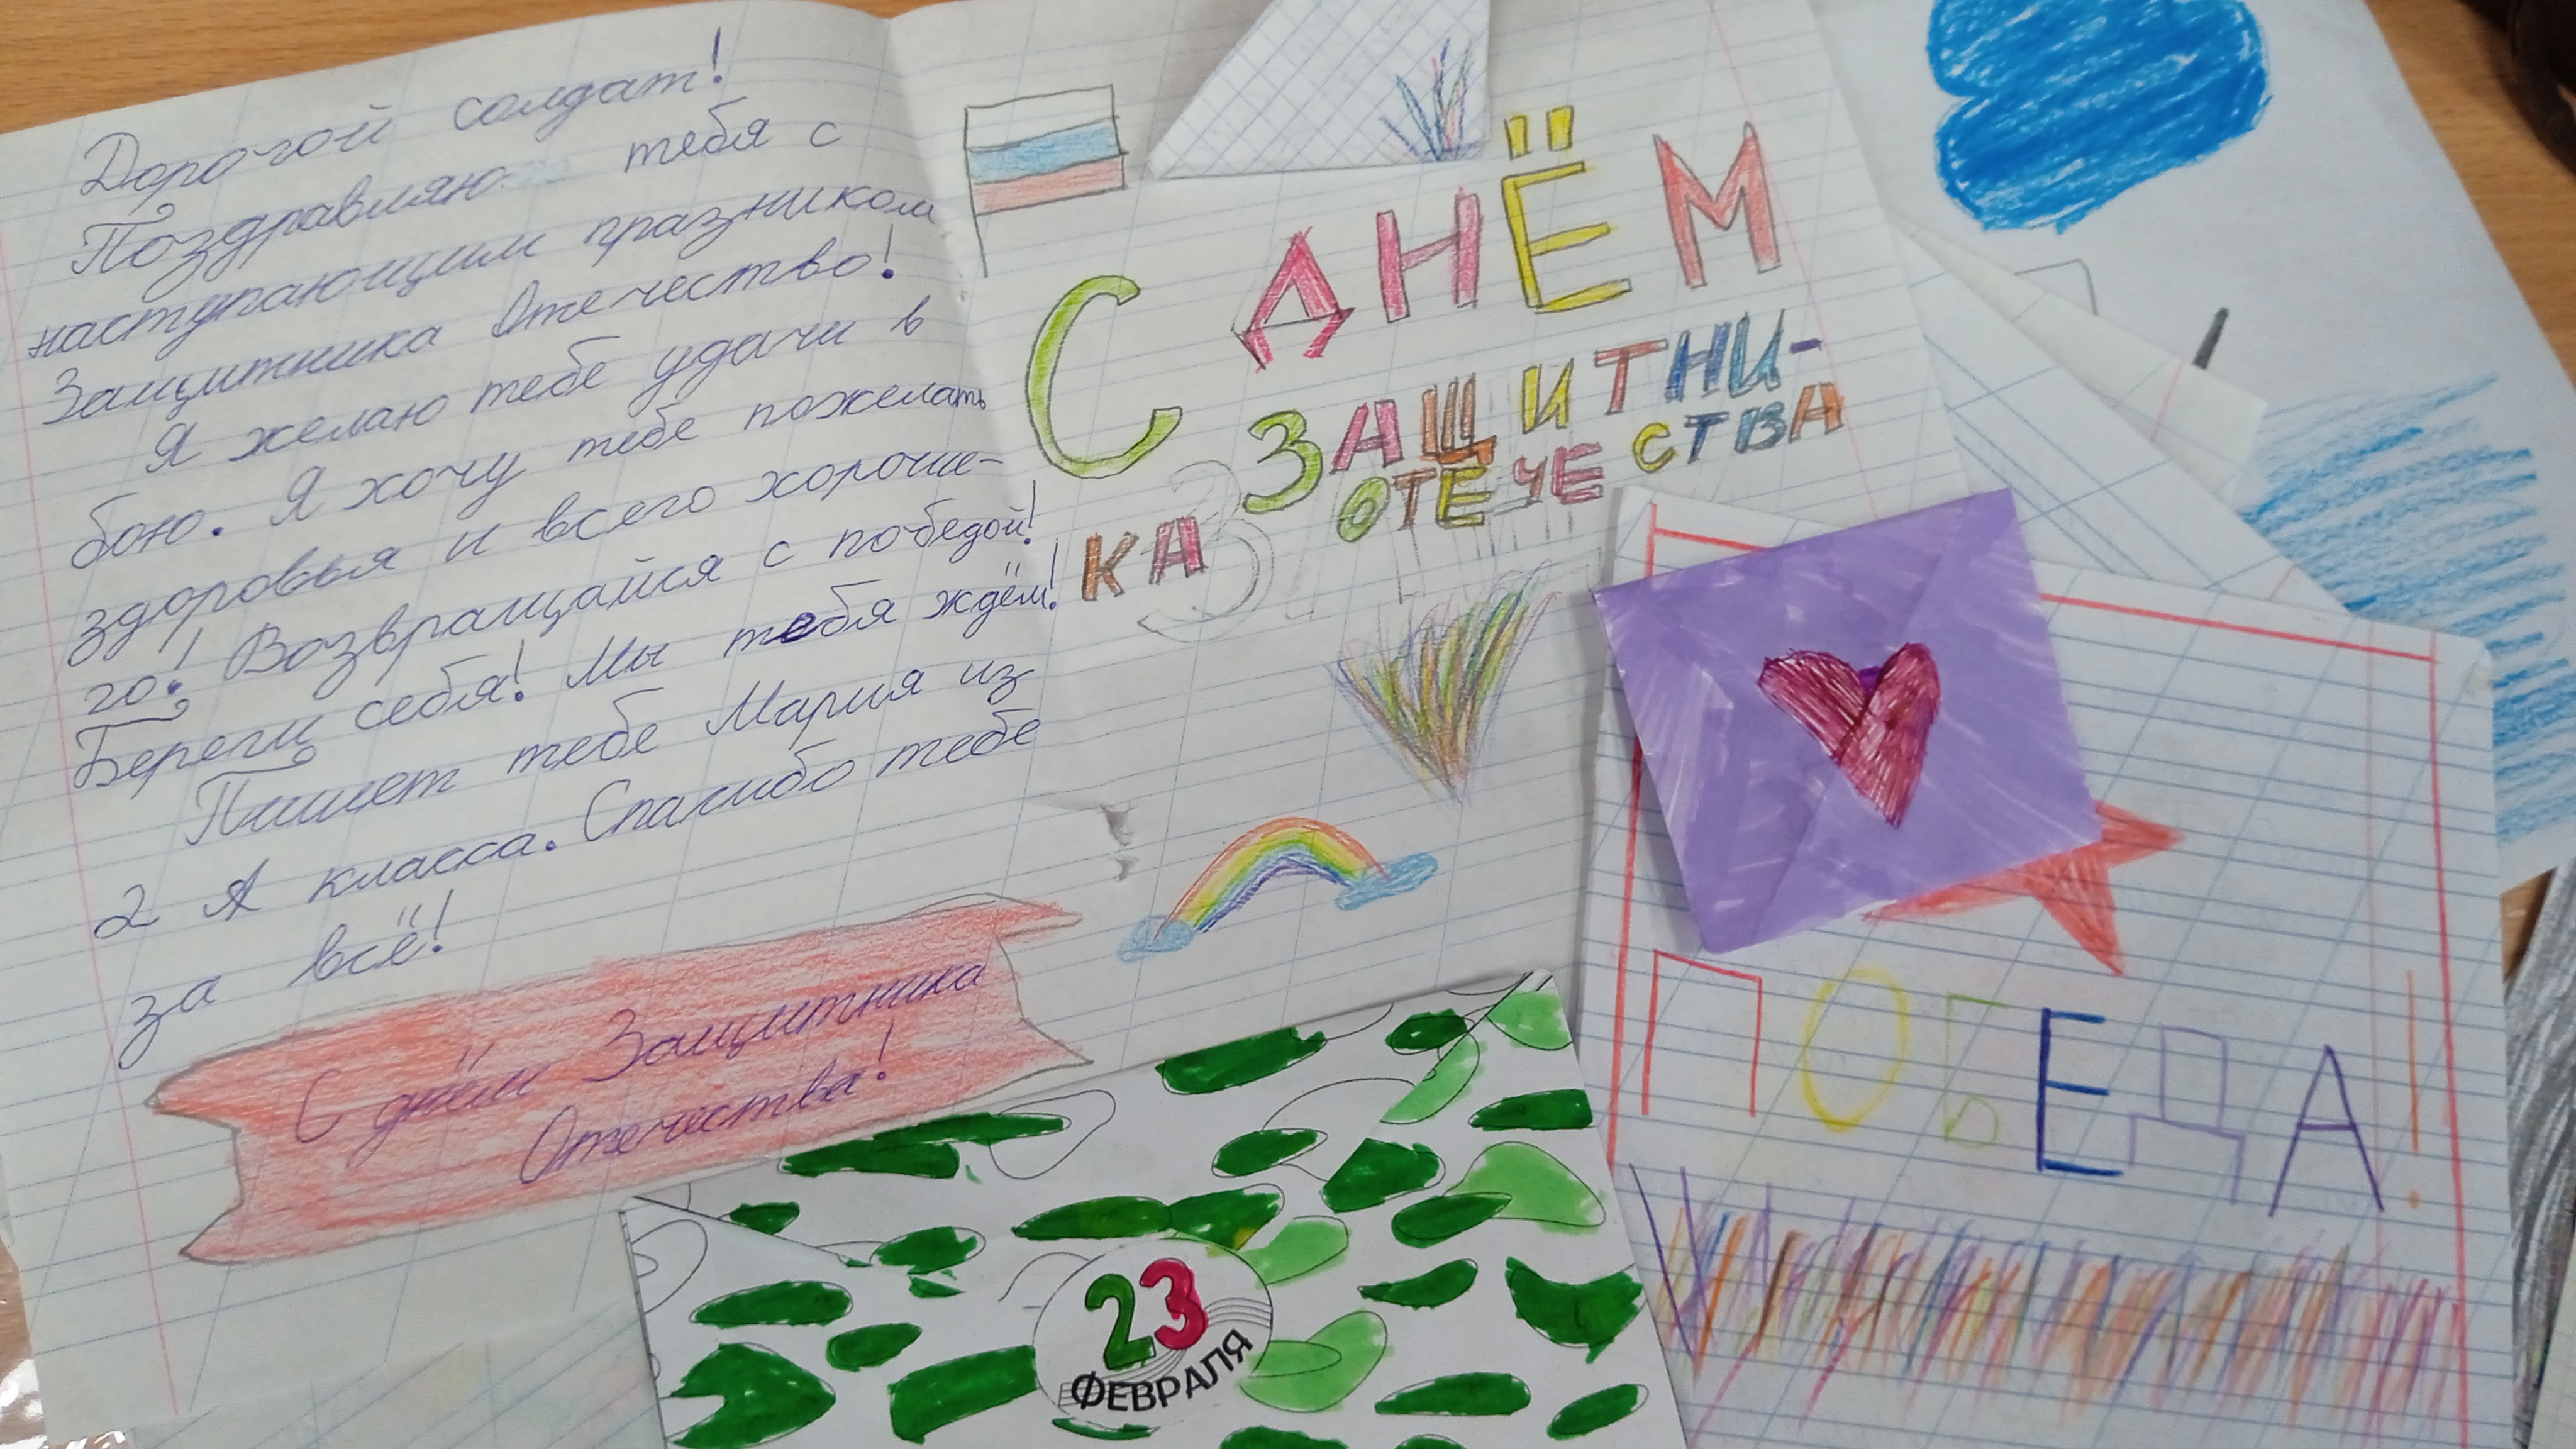 Дорогой солдат!
Поздравляю тебя с
наступающим празником
Защитника Отечество!
Я желаю тебе удачи в
бою. Я хочу тебе пожелать
здоровья и всего хороше-
го! Возвращайся с победой!
Береги себя! Мы тебя ждём!
Пишет тебе Мария из
2 А класса. Спасибо тебе
за всё!
С днём Защитника
Отечества!
С ДНЁМ
ЗАЩИТНИ-
КА ОТЕЧЕСТВА
23
ФЕВРАЛЯ
ПОБЕДА!